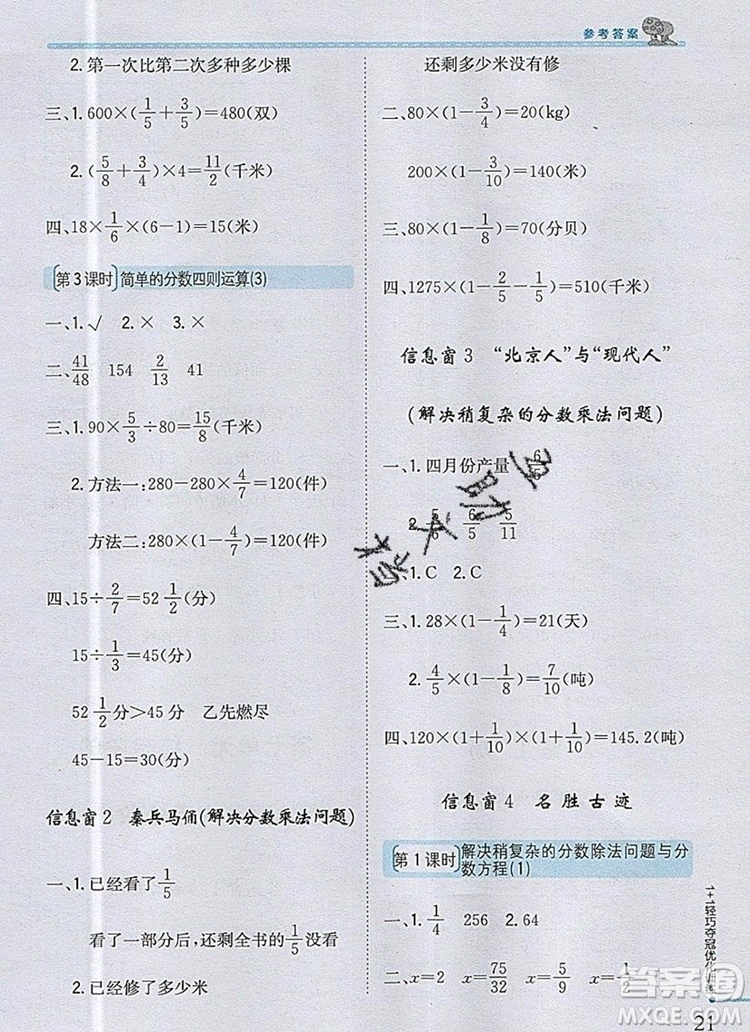 参考答案
2. 第一次比第二次多种多少棵
三、1. 600×(1/5+3/5)=480(双)
2. (5/8+3/4)×4=11/2(千米)
四、18×1/6×(6-1)=15(米)
第3课时 简单的分数四则运算(3)
一、1. √ 2. × 3. ×
二、41/48 154 2/13 41
三、1. 90×5/3÷80=15/8(千米)
2. 方法一:280-280×4/7=120(件)
方法二:280×(1-4/7)=120(件)
四、15÷2/7=52 1/2(分)
15÷1/3=45(分)
52 1/2分>45分 乙先燃尽
45-15=30(分)
信息窗2 秦兵马俑(解决分数乘法问题)
一、1. 已经看了1/5
看了一部分后,还剩全书的1/5没看
2. 已经修了多少米
还剩多少米没有修
二、80×(1-3/4)=20(kg)
200×(1-3/10)=140(米)
三、80×(1-1/8)=70(分贝)
四、1275×(1-2/5-1/5)=510(千米)
信息窗3 “北京人”与“现代人”
(解决稍复杂的分数乘法问题)
一、1. 四月份产量 6/5
2. 5/6 6/5 5/11
1. C 2. C
三、1. 28×(1-1/4)=21(天)
2. 4/5×(1-1/8)=7/10(吨)
四、120×(1+1/10)×(1+1/10)=145.2(吨)
信息窗4 名胜古迹
第1课时 解决稍复杂的分数除法问题与分
数方程(1)
一、1. 1/4 256 2. 64
二、x=2 x=75/32 x=5/9 x=
1+1轻巧夺冠优化训练
21
答案圈
MXQE.COM